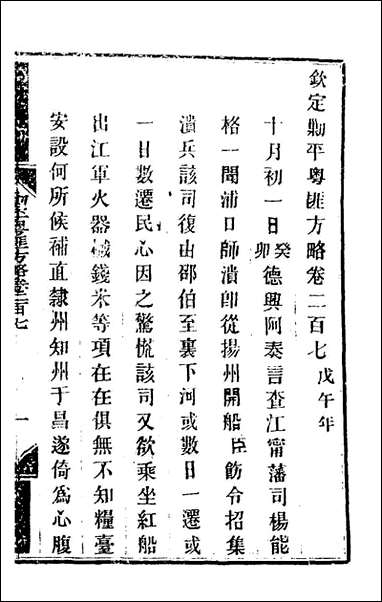 欽定勦平粤匪方略卷二百七戊午年
十月初一日癸卯德興阿奏言查江甯藩司楊能
格一聞浦口師潰卽從揚州開船臣飭令招集
潰兵該司復由邵伯至裏下河或數日一遷或
一日數遷民心因之驚慌該司又欲乘坐紅船
出江軍火器械錢米等項在在俱無不知糧臺
安設何所候補直隷州知州于昌遂倚爲心腹